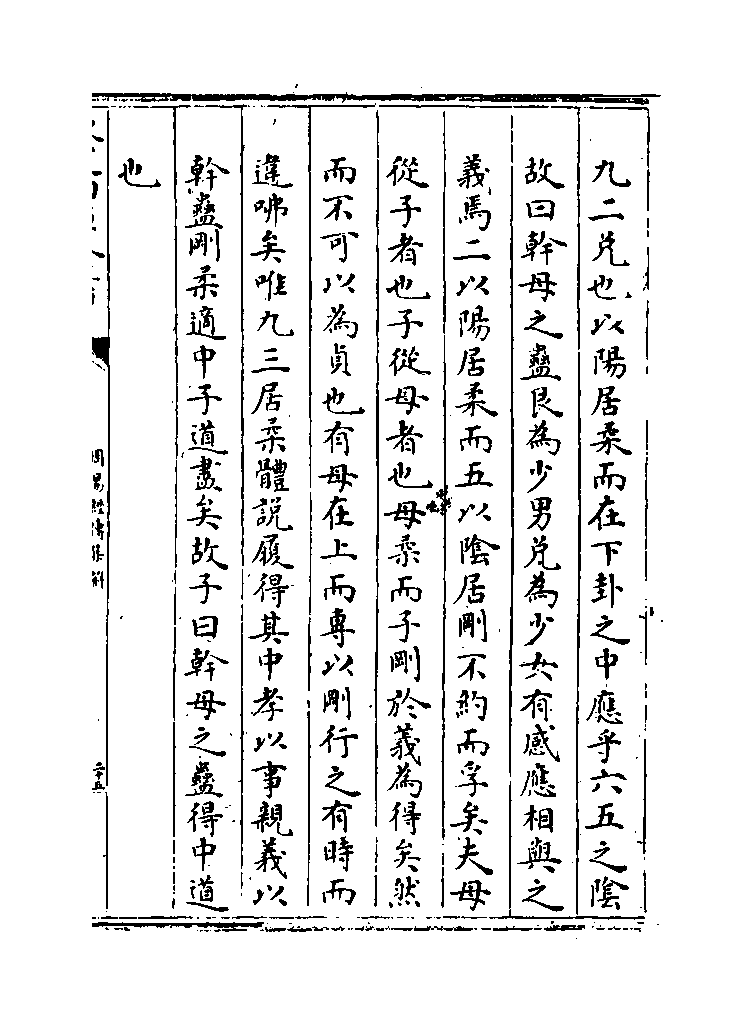 九二兌也以陽居柔而在下卦之中應乎六五之陰
故曰幹母之蠱艮為少男兌為少女有感應相與之
義焉二以陽居柔而五以陰居剛不約而孚矣夫母
從子者也子從母者也母柔而子剛於義為得矣然
而不可以為貞也有母在上而專以剛行之有時而
違咈矣唯九三居柔體說履得其中孝以事親義以
幹蠱剛柔適中子道盡矣故子曰幹母之蠱得中道
也
周易經傳集解
二十五